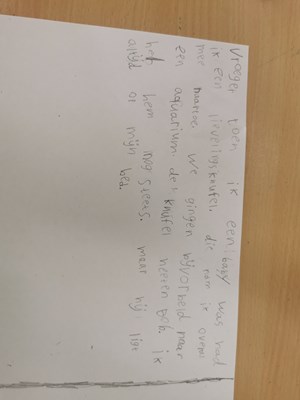 Vroeger toen ik een baby was had
ik een lievelingsknufel. die nam ik overal
mee naartoe. We gingen bijvorbeeld naar
een aquarium. de knufel heeten Bob. ik
heb hem nog steeds. maar hij ligt
altijd op mijn bed.